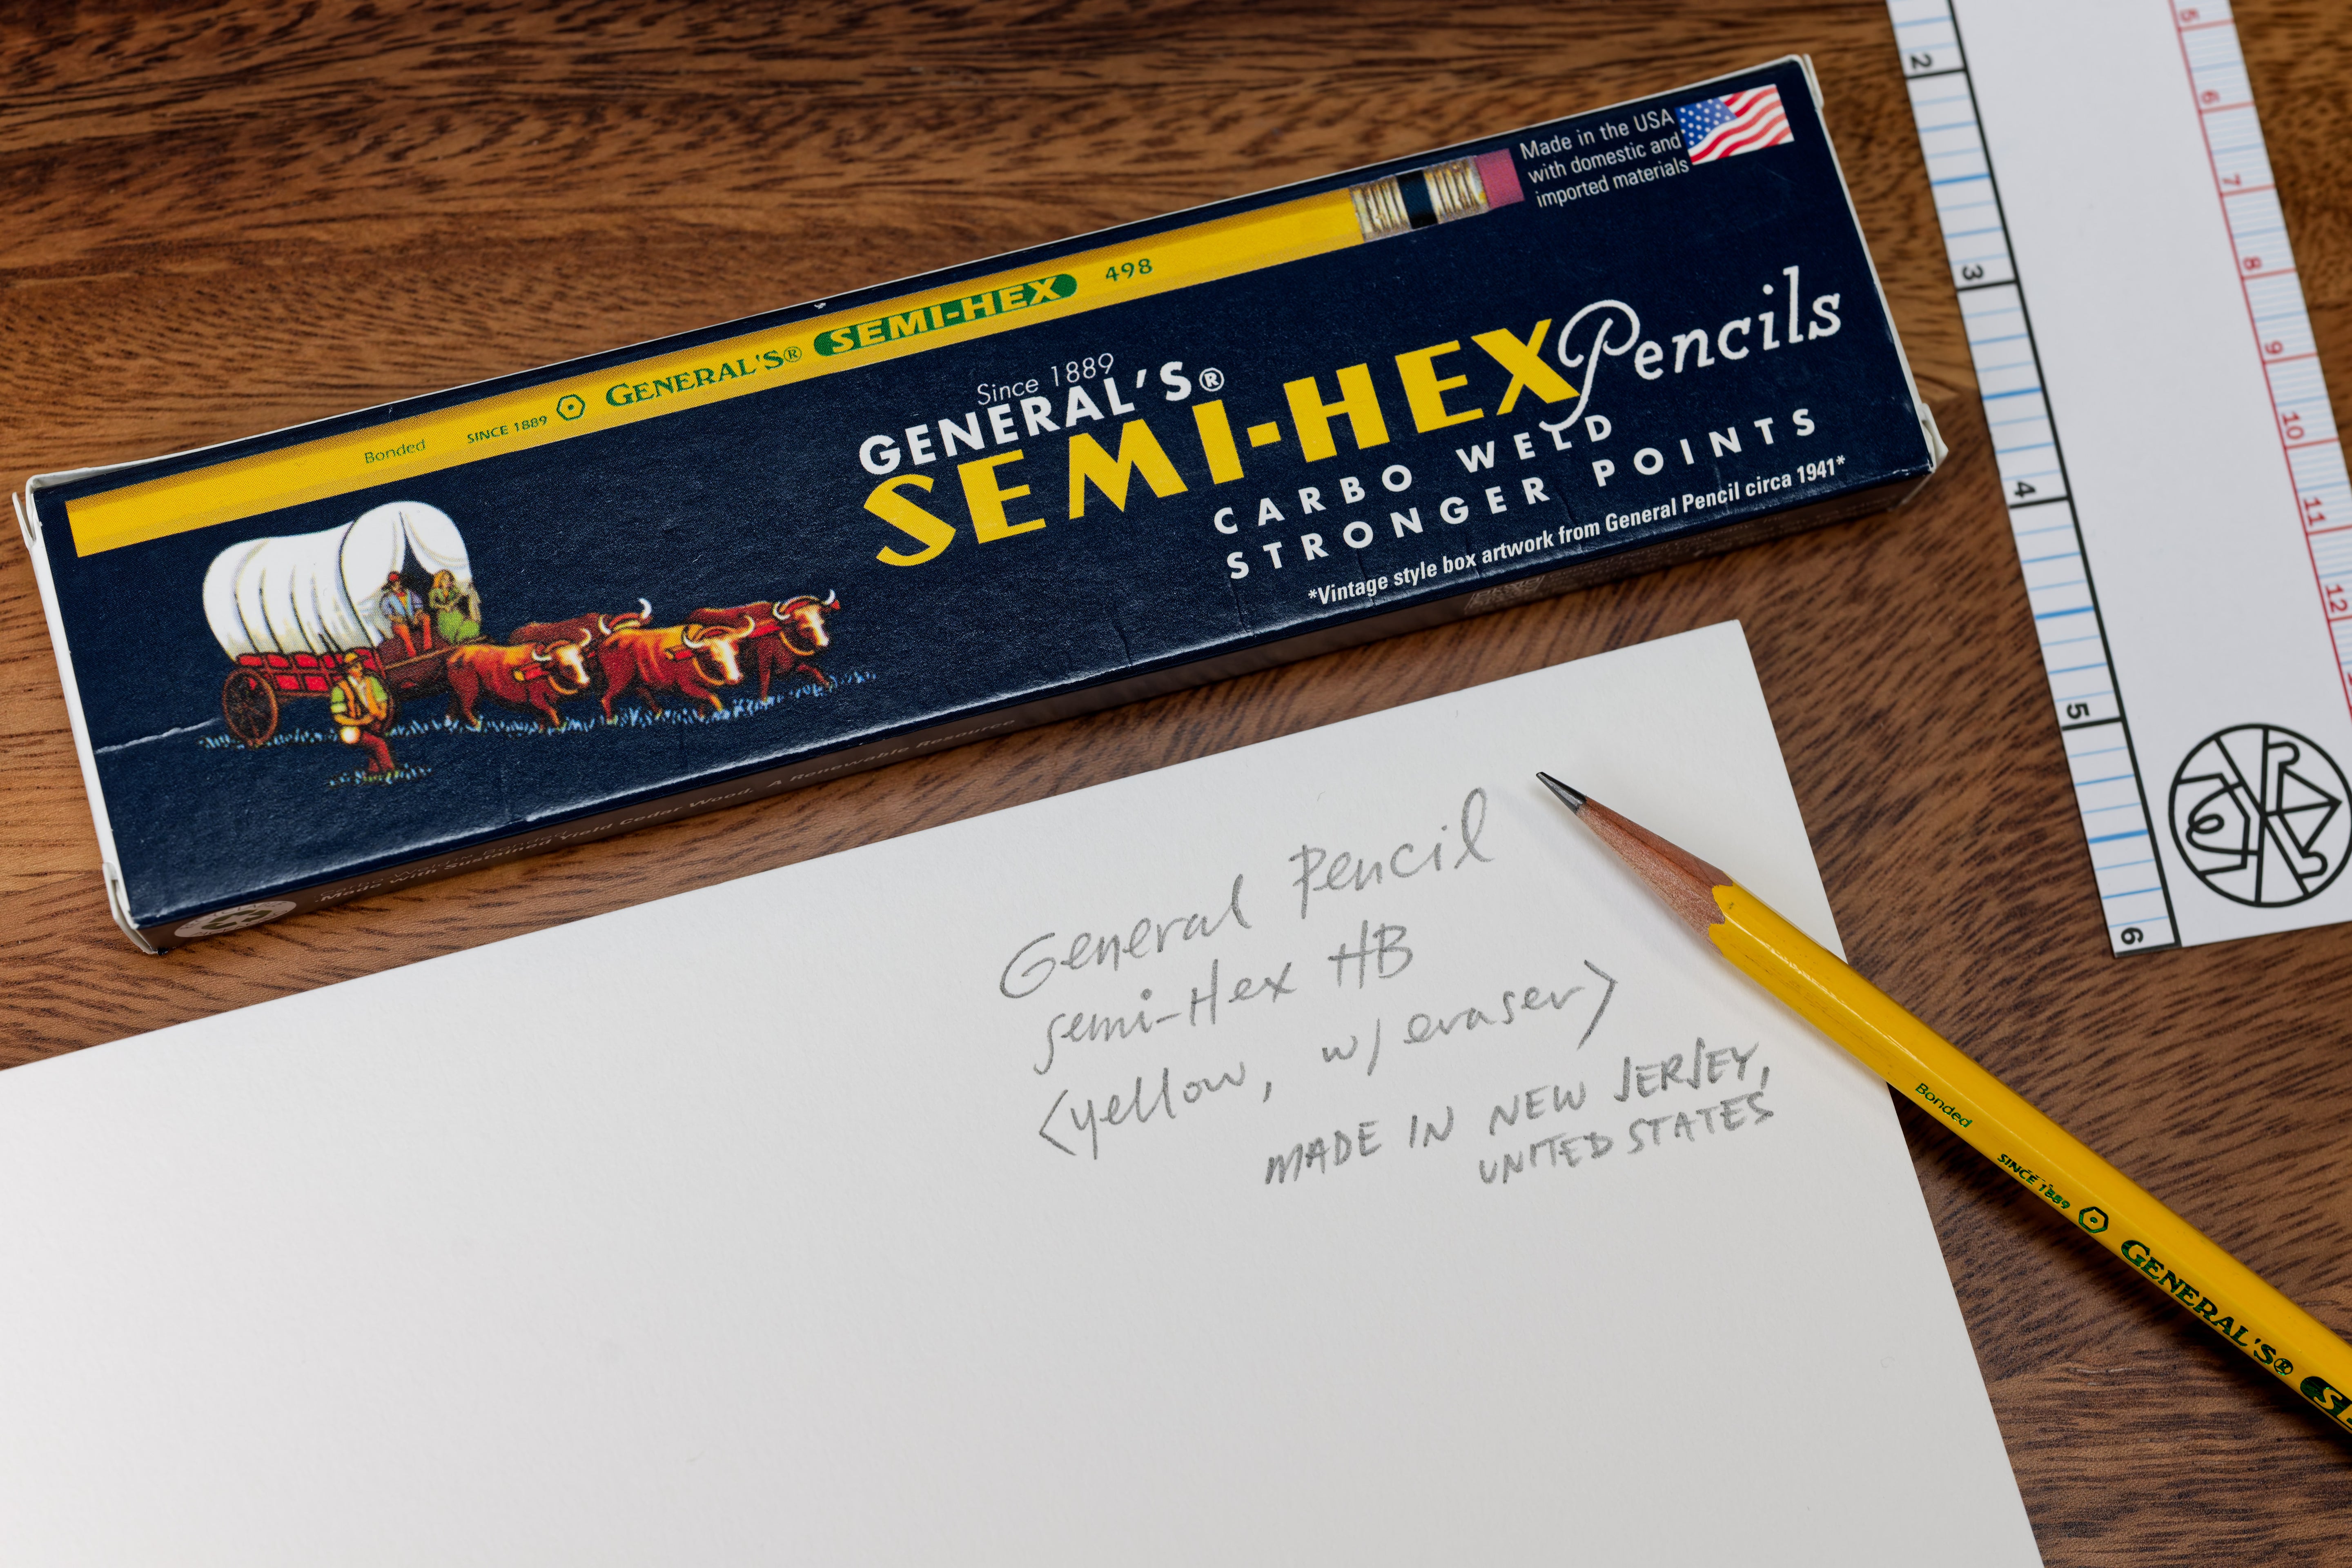 Made in the USA
with domestic and
imported materials
Bonded SINCE 1889 GENERAL'S® SEMI-HEX 498
Since 1889
GENERAL'S®
SEMI-HEX Pencils
CARBO WELD
STRONGER POINTS
*Vintage style box artwork from General Pencil circa 1941*
Made with Sustained Yield Cedar Wood. A Renewable Resource
General Pencil
Semi-Hex HB
<yellow, w/ eraser>
MADE IN NEW JERSEY,
UNITED STATES
Bonded SINCE 1889 GENERAL'S®
2
3
4
5
6
5
6
7
8
9
10
11
12